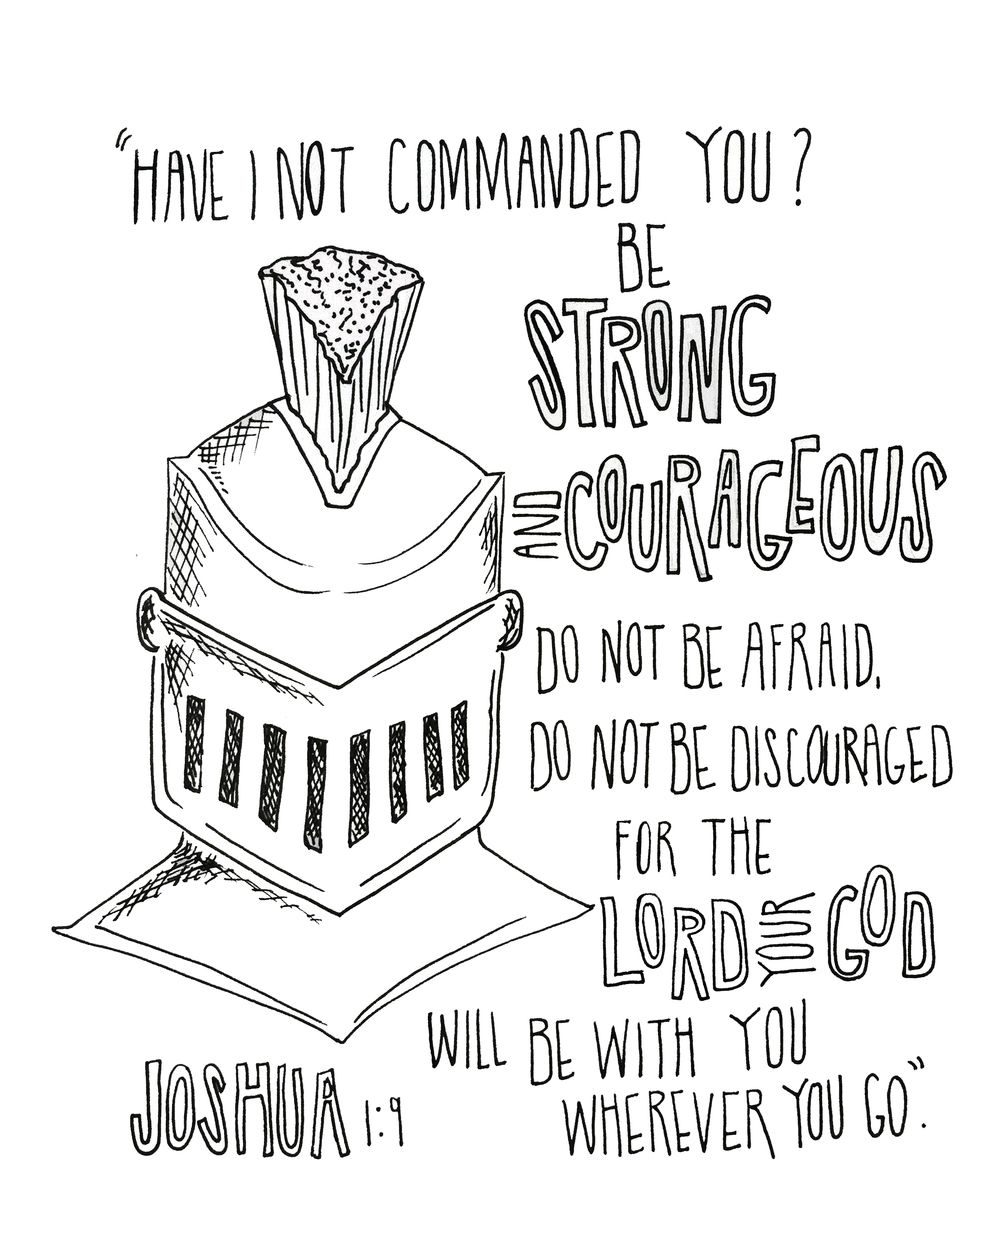 "HAVE I NOT COMMANDED YOU?
BE
STRONG
AND COURAGEOUS
DO NOT BE AFRAID.
DO NOT BE DISCOURAGED
FOR THE
LORD YOUR GOD
WILL BE WITH YOU
WHEREVER YOU GO".
JOSHUA 1:9